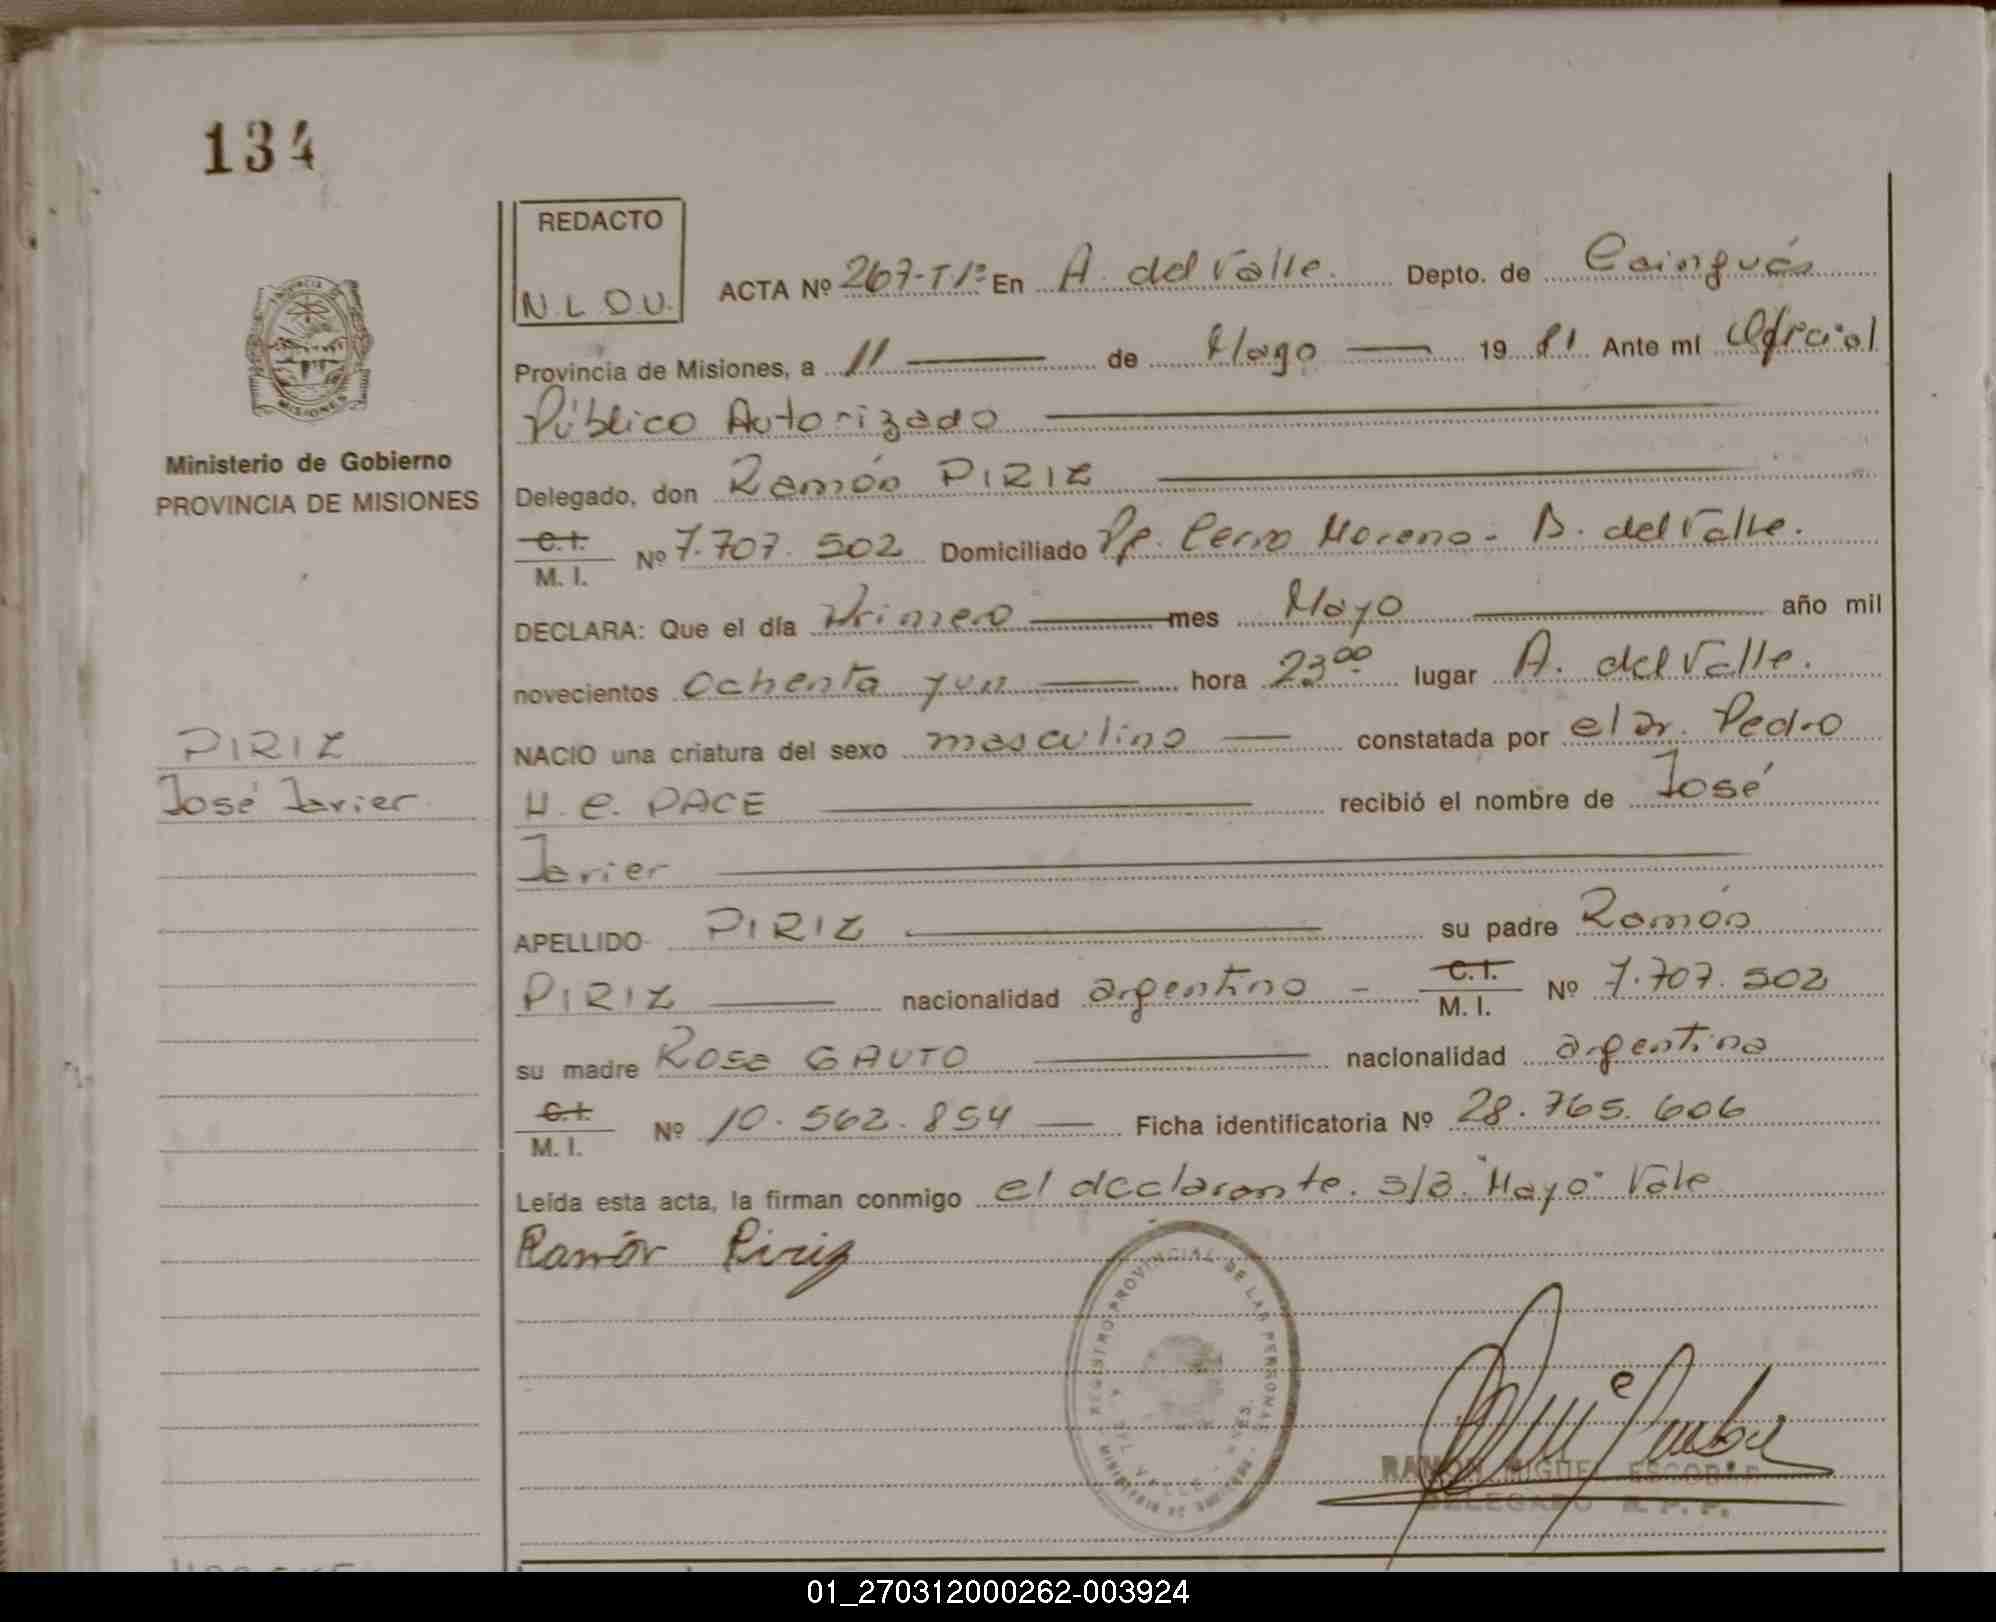 134
REDACTO
N.L.D.U.
ACTA Nº 267-T1º En A. del Valle. Depto. de Cainguás
Provincia de Misiones, a 11 de Mayo 19 81 Ante mí Oficial
Público Autorizado
Ministerio de Gobierno
PROVINCIA DE MISIONES
Delegado, don Ramón PIRIZ
C.I. M. I. Nº 7.707.502 Domiciliado Pje. Cerro Moreno - A. del Valle.
DECLARA: Que el día Primero mes Mayo año mil
novecientos ochenta y un hora 23⁰⁰ lugar A. del Valle.
PIRIZ
José Javier
NACIO una criatura del sexo masculino constatada por el Dr. Pedro
H. C. PACE recibió el nombre de José
Javier
APELLIDO PIRIZ su padre Ramón
PIRIZ nacionalidad argentino - C.I. M. I. Nº 7.707.502
su madre Rosa GAUTO nacionalidad argentina
C.I. M. I. Nº 10.562.854 Ficha identificatoria Nº 28.765.606
Leída esta acta, la firman conmigo el declarante. s/a. "Mayo" Vale
Ramón Piriz
REGISTRO PROVINCIAL DE LAS PERSONAS
RAMON MIGUEL ESCOBAR
DELEGADO R. P. P.
01_270312000262-003924